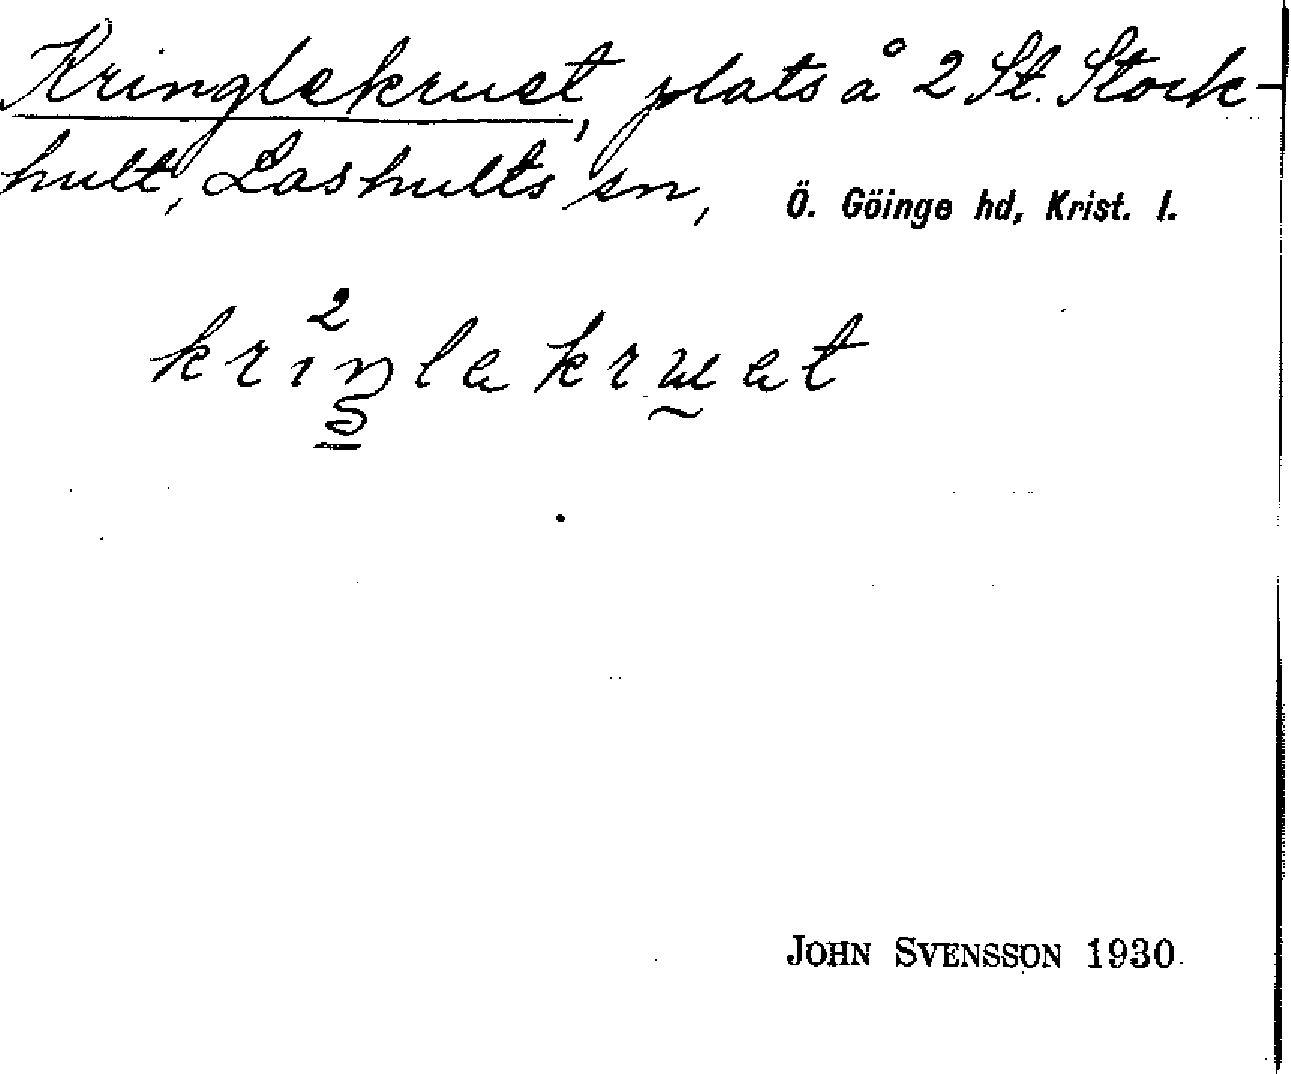 Kringlekruet, plats å 2 St. Stock-
hult, Loshults sn, Ö. Göinge hd, Krist. l.
JOHN SVENSSON 1930